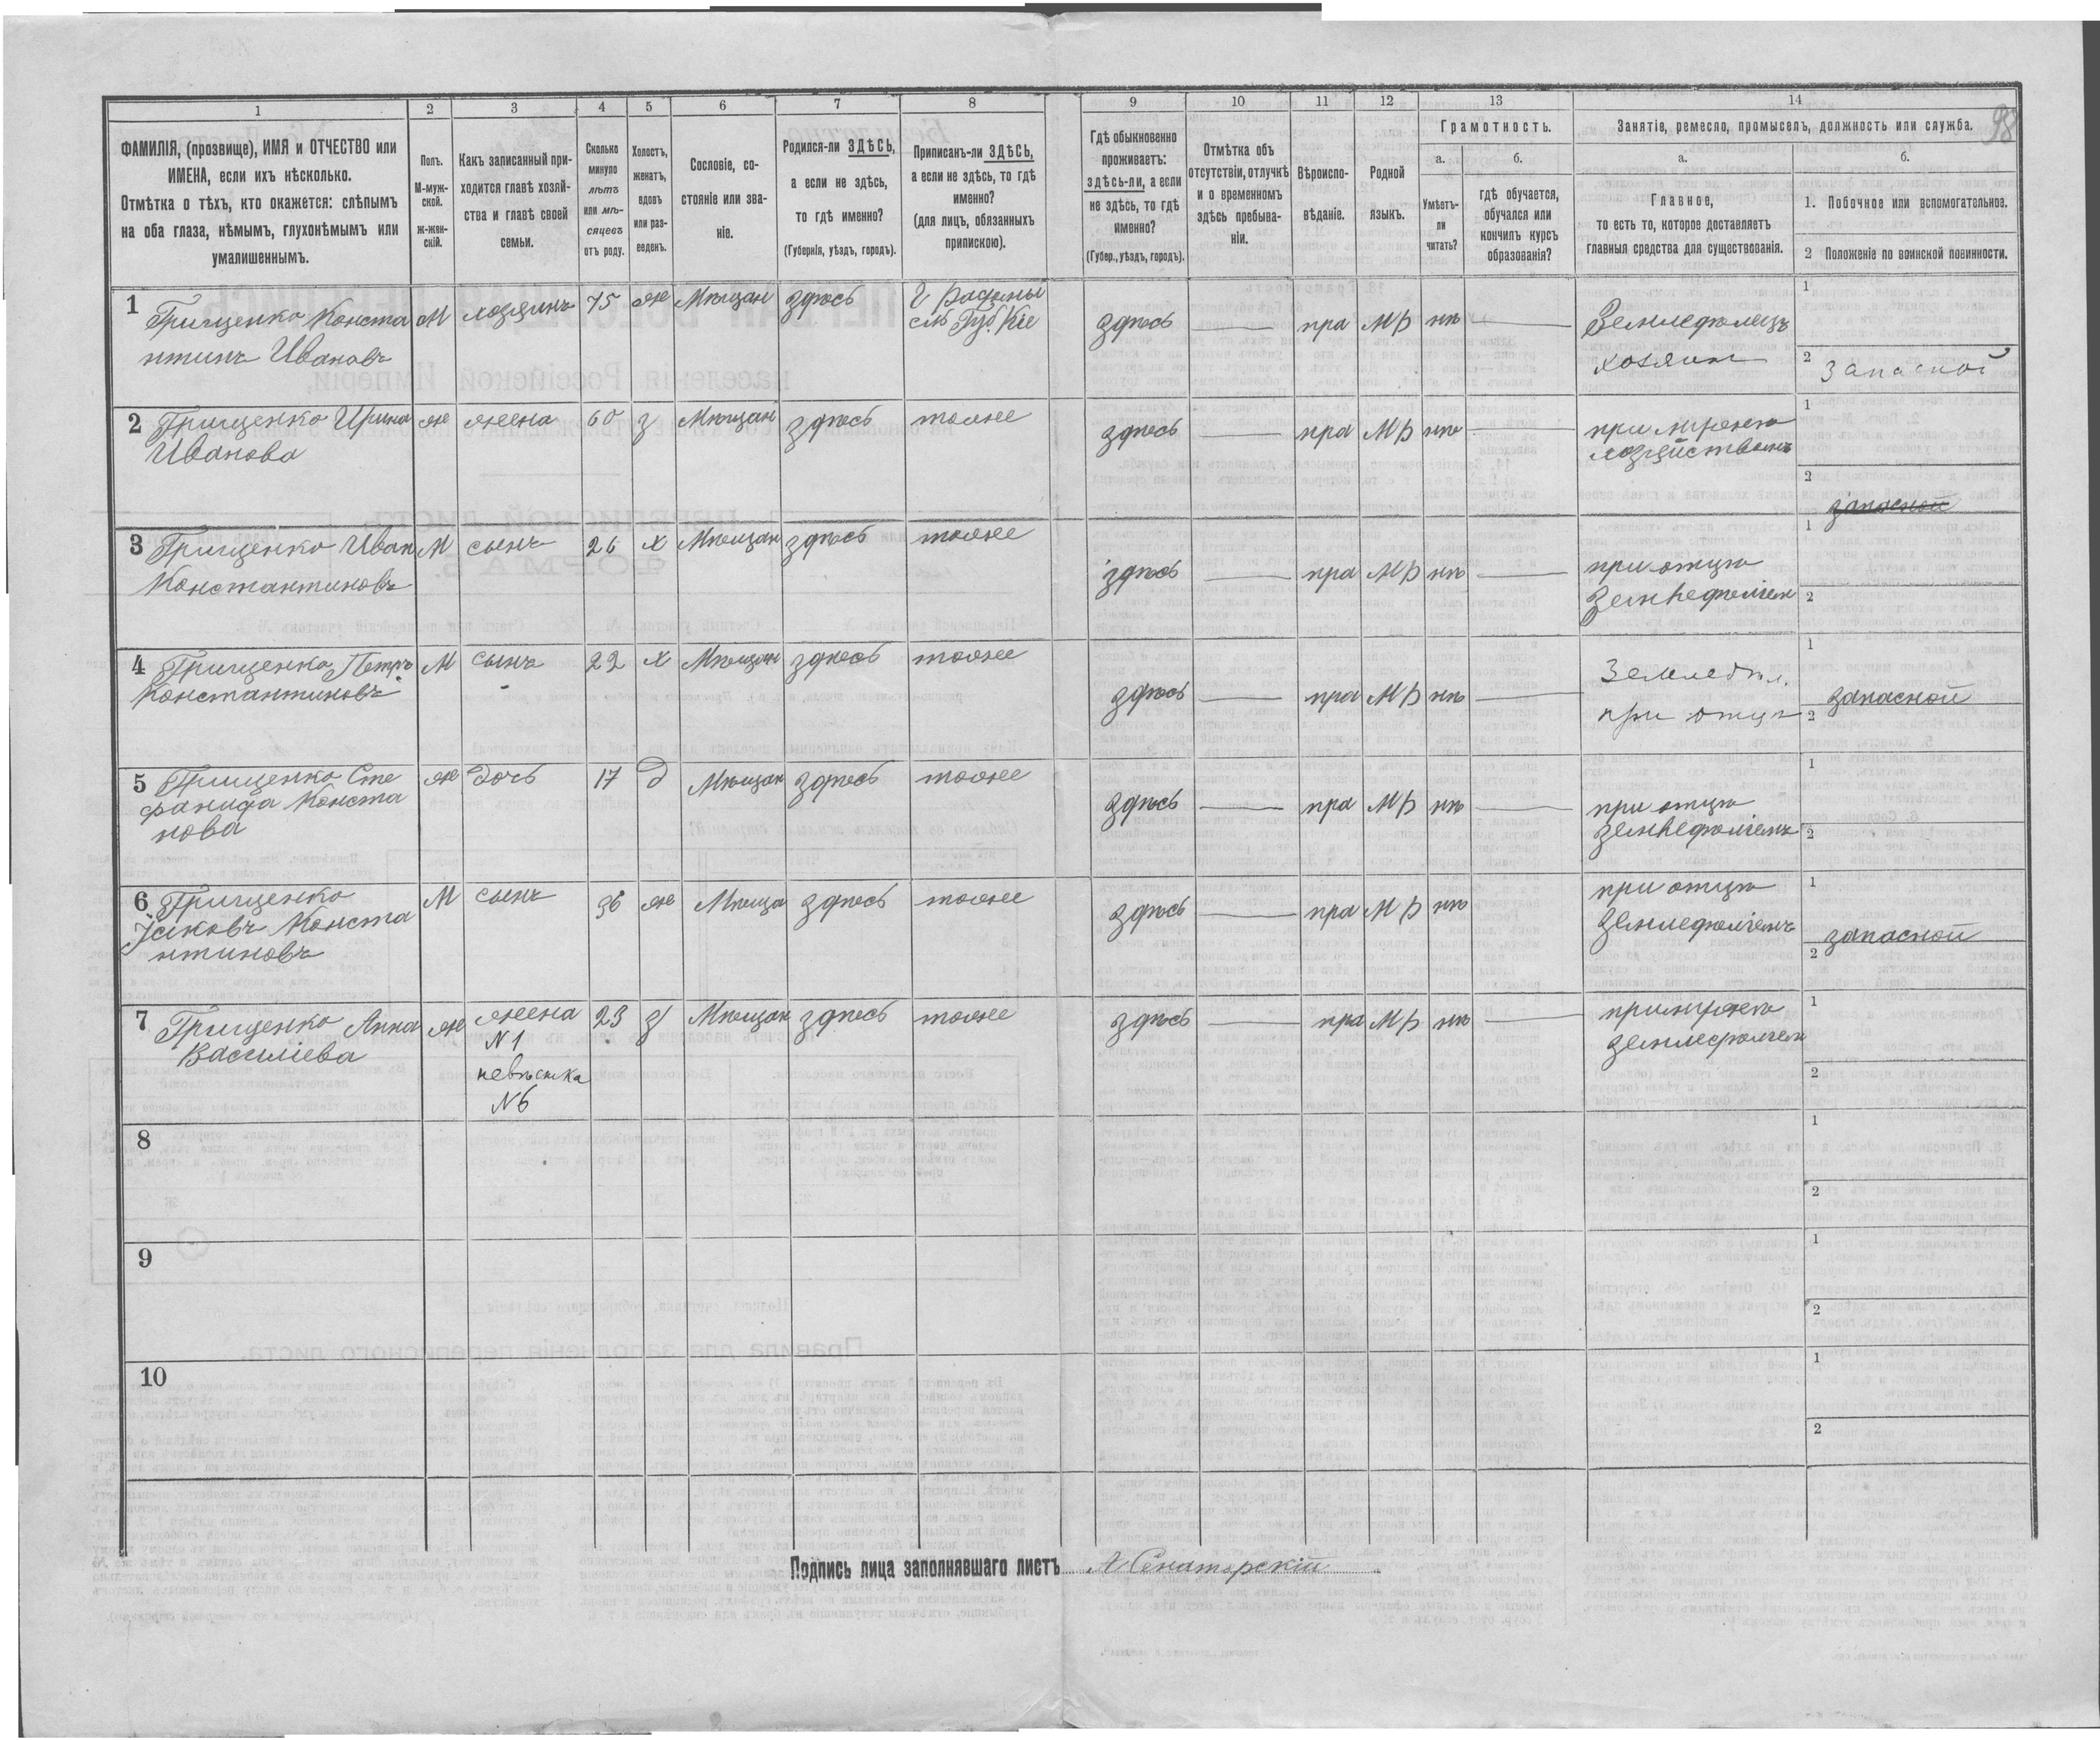 98
1
2
3
4
5
6
7
8
9
10
11
12
13
14
ФАМИЛІЯ, (прозвище), ИМЯ и ОТЧЕСТВО или
ИМЕНА, если ихъ нѣсколько.
Отмѣтка о тѣхъ, кто окажется: слѣпымъ
на оба глаза, нѣмымъ, глухонѣмымъ или
умалишеннымъ.
Полъ.
М-муж-
ской.
ж-жен-
скій.
Какъ записанный при-
ходится главѣ хозяй-
ства и главѣ своей
семьи.
Сколько
минуло
лѣтъ
или мѣ-
сяцевъ
отъ роду.
Холостъ,
женатъ,
вдовъ
или раз-
веденъ.
Сословіе, со-
стояніе или зва-
ніе.
Родился-ли ЗДѢСЬ,
а если не здѣсь,
то гдѣ именно?
(Губернія, уѣздъ, городъ).
Приписанъ-ли ЗДѢСЬ,
а если не здѣсь, то гдѣ
именно?
(для лицъ, обязанныхъ
припискою).
Гдѣ обыкновенно
проживаетъ:
здѣсь-ли, а если
не здѣсь, то гдѣ
именно?
(Губер., уѣздъ, городъ).
Отмѣтка объ
отсутствіи, отлучкѣ
и о временномъ
здѣсь пребыва-
ніи.
Вѣроиспо-
вѣданіе.
Родной
языкъ.
Грамотность.
а.
Умѣетъ-
ли
читать?
б.
гдѣ обучается,
обучался или
кончилъ курсъ
образованія?
Занятіе, ремесло, промыселъ, должность или служба.
а.
Главное,
то есть то, которое доставляетъ
главныя средства для существованія.
б.
1. Побочное или вспомогательное.
2 Положеніе по воинской повинности.
1 Грищенко Конста М хозяинъ 75 же Мѣщан здѣсь
нтинъ Ивановъ
Губ. Кіе
здѣсь пра МР нѣ Земледѣлецъ 1
хозяин 2 запасной
2 Грищенко Ирина же жена 60 з Мѣщан здѣсь тоже здѣсь пра МР нѣ при мужѣ 1
Иванова
2 запасной
3 Грищенко Иван М сынъ 26 х Мѣщан здѣсь тоже здѣсь пра МР нѣ при отцѣ 1
Константиновъ
2
4 Грищенко Петръ М сынъ 22 х Мѣщан здѣсь тоже здѣсь пра МР нѣ Земледѣл. 1
Константиновъ при отцѣ запасной
2
5 Грищенко Сте же дочь 17 д Мѣщан здѣсь тоже здѣсь пра МР нѣ при отцѣ 1
фанида Конста
нова
2
6 Грищенко М сынъ 36 же Мѣща здѣсь тоже здѣсь пра МР нѣ при отцѣ 1
Конста
нтиновъ
запасной
2
7 Грищенко Анна же жена 23 з Мѣщан здѣсь тоже здѣсь пра МР нѣ 1
Василіева N 1
невѣстка
N 6
2
8
1
2
9
1
2
10
1
2
Подпись лица заполнявшаго листъ А Сенаторскій